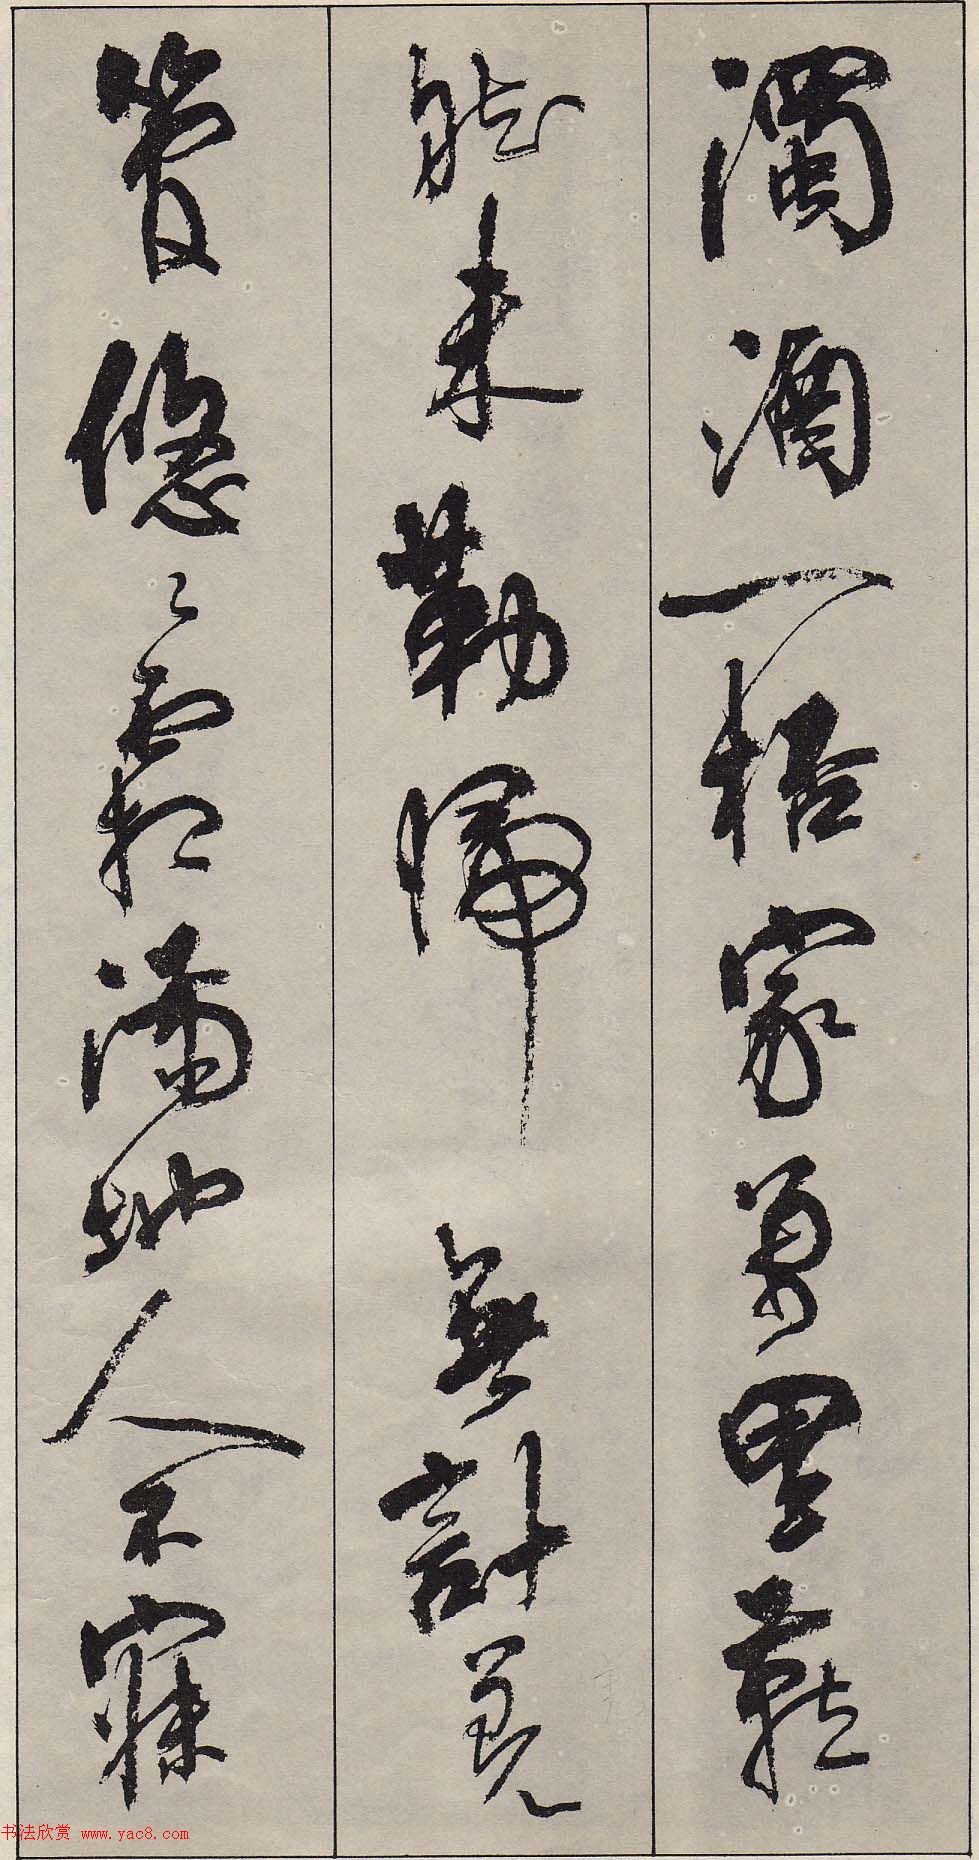 濁酒一桮家萬里燕
然未勒歸無計羌
管悠々霜滿地人不寐
书法欣赏 www.yac8.com